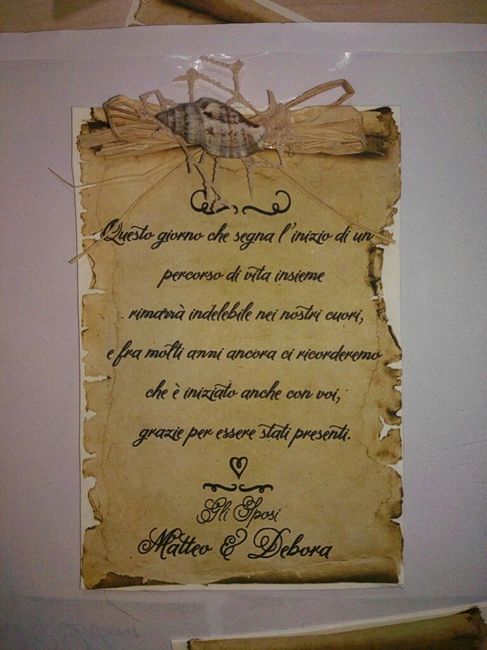 Questo giorno che segna l'inizio di un
percorso di vita insieme
rimarrà indelebile nei nostri cuori,
e fra molti anni ancora ci ricorderemo
che è iniziato anche con voi,
grazie per essere stati presenti.
Gli Sposi
Matteo & Debora